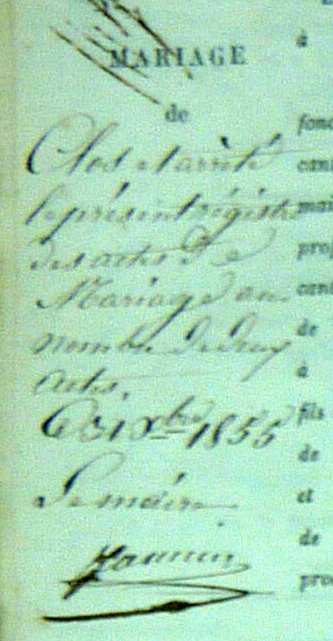 MARIAGE à
de
Clos et arrêté fond
le présent régistre mai
des actes de prof
Mariage au cant
nombre de deux de
actes. à
Ce 31 xbre 1855 fils
de
Le maire et
de
prof